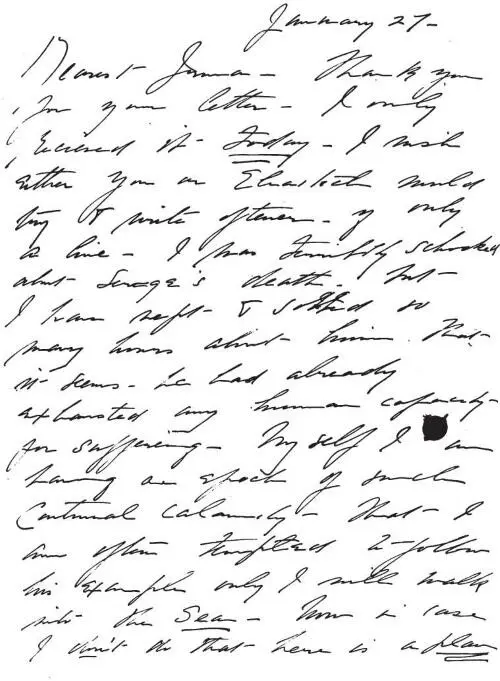 January 27-
Dearest Irma - Thank you
for your letter - I only
received it - today - I wish
either you or Elisabeth would
try & write oftener - if only
a line - I was terribly schocked
about Serage's death. but -
I have wept & sobbed so
many hours about him that -
it seems - he had already
exhausted any human capacity -
for suffering - Myself I am
having an epoch of such
Continual Calamity - that - I
am often tempted to follow
his example only I will walk
into the Sea - Now in case
I don't do that - here is a plan